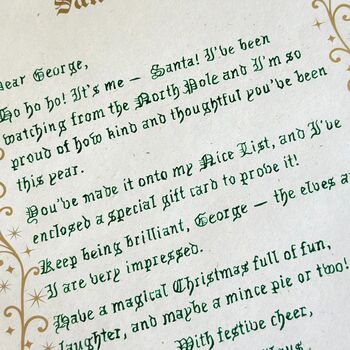 Dear George,
Ho ho ho! It's me – Santa! I've been
watching from the North Pole and I'm so
proud of how kind and thoughtful you've been
this year.
You've made it onto my Nice List, and I've
enclosed a special gift card to probe it!
Keep being brilliant, George – the elves a
I are very impressed.
Have a magical Christmas full of fun,
laughter, and maybe a mince pie or two!
With festive cheer,